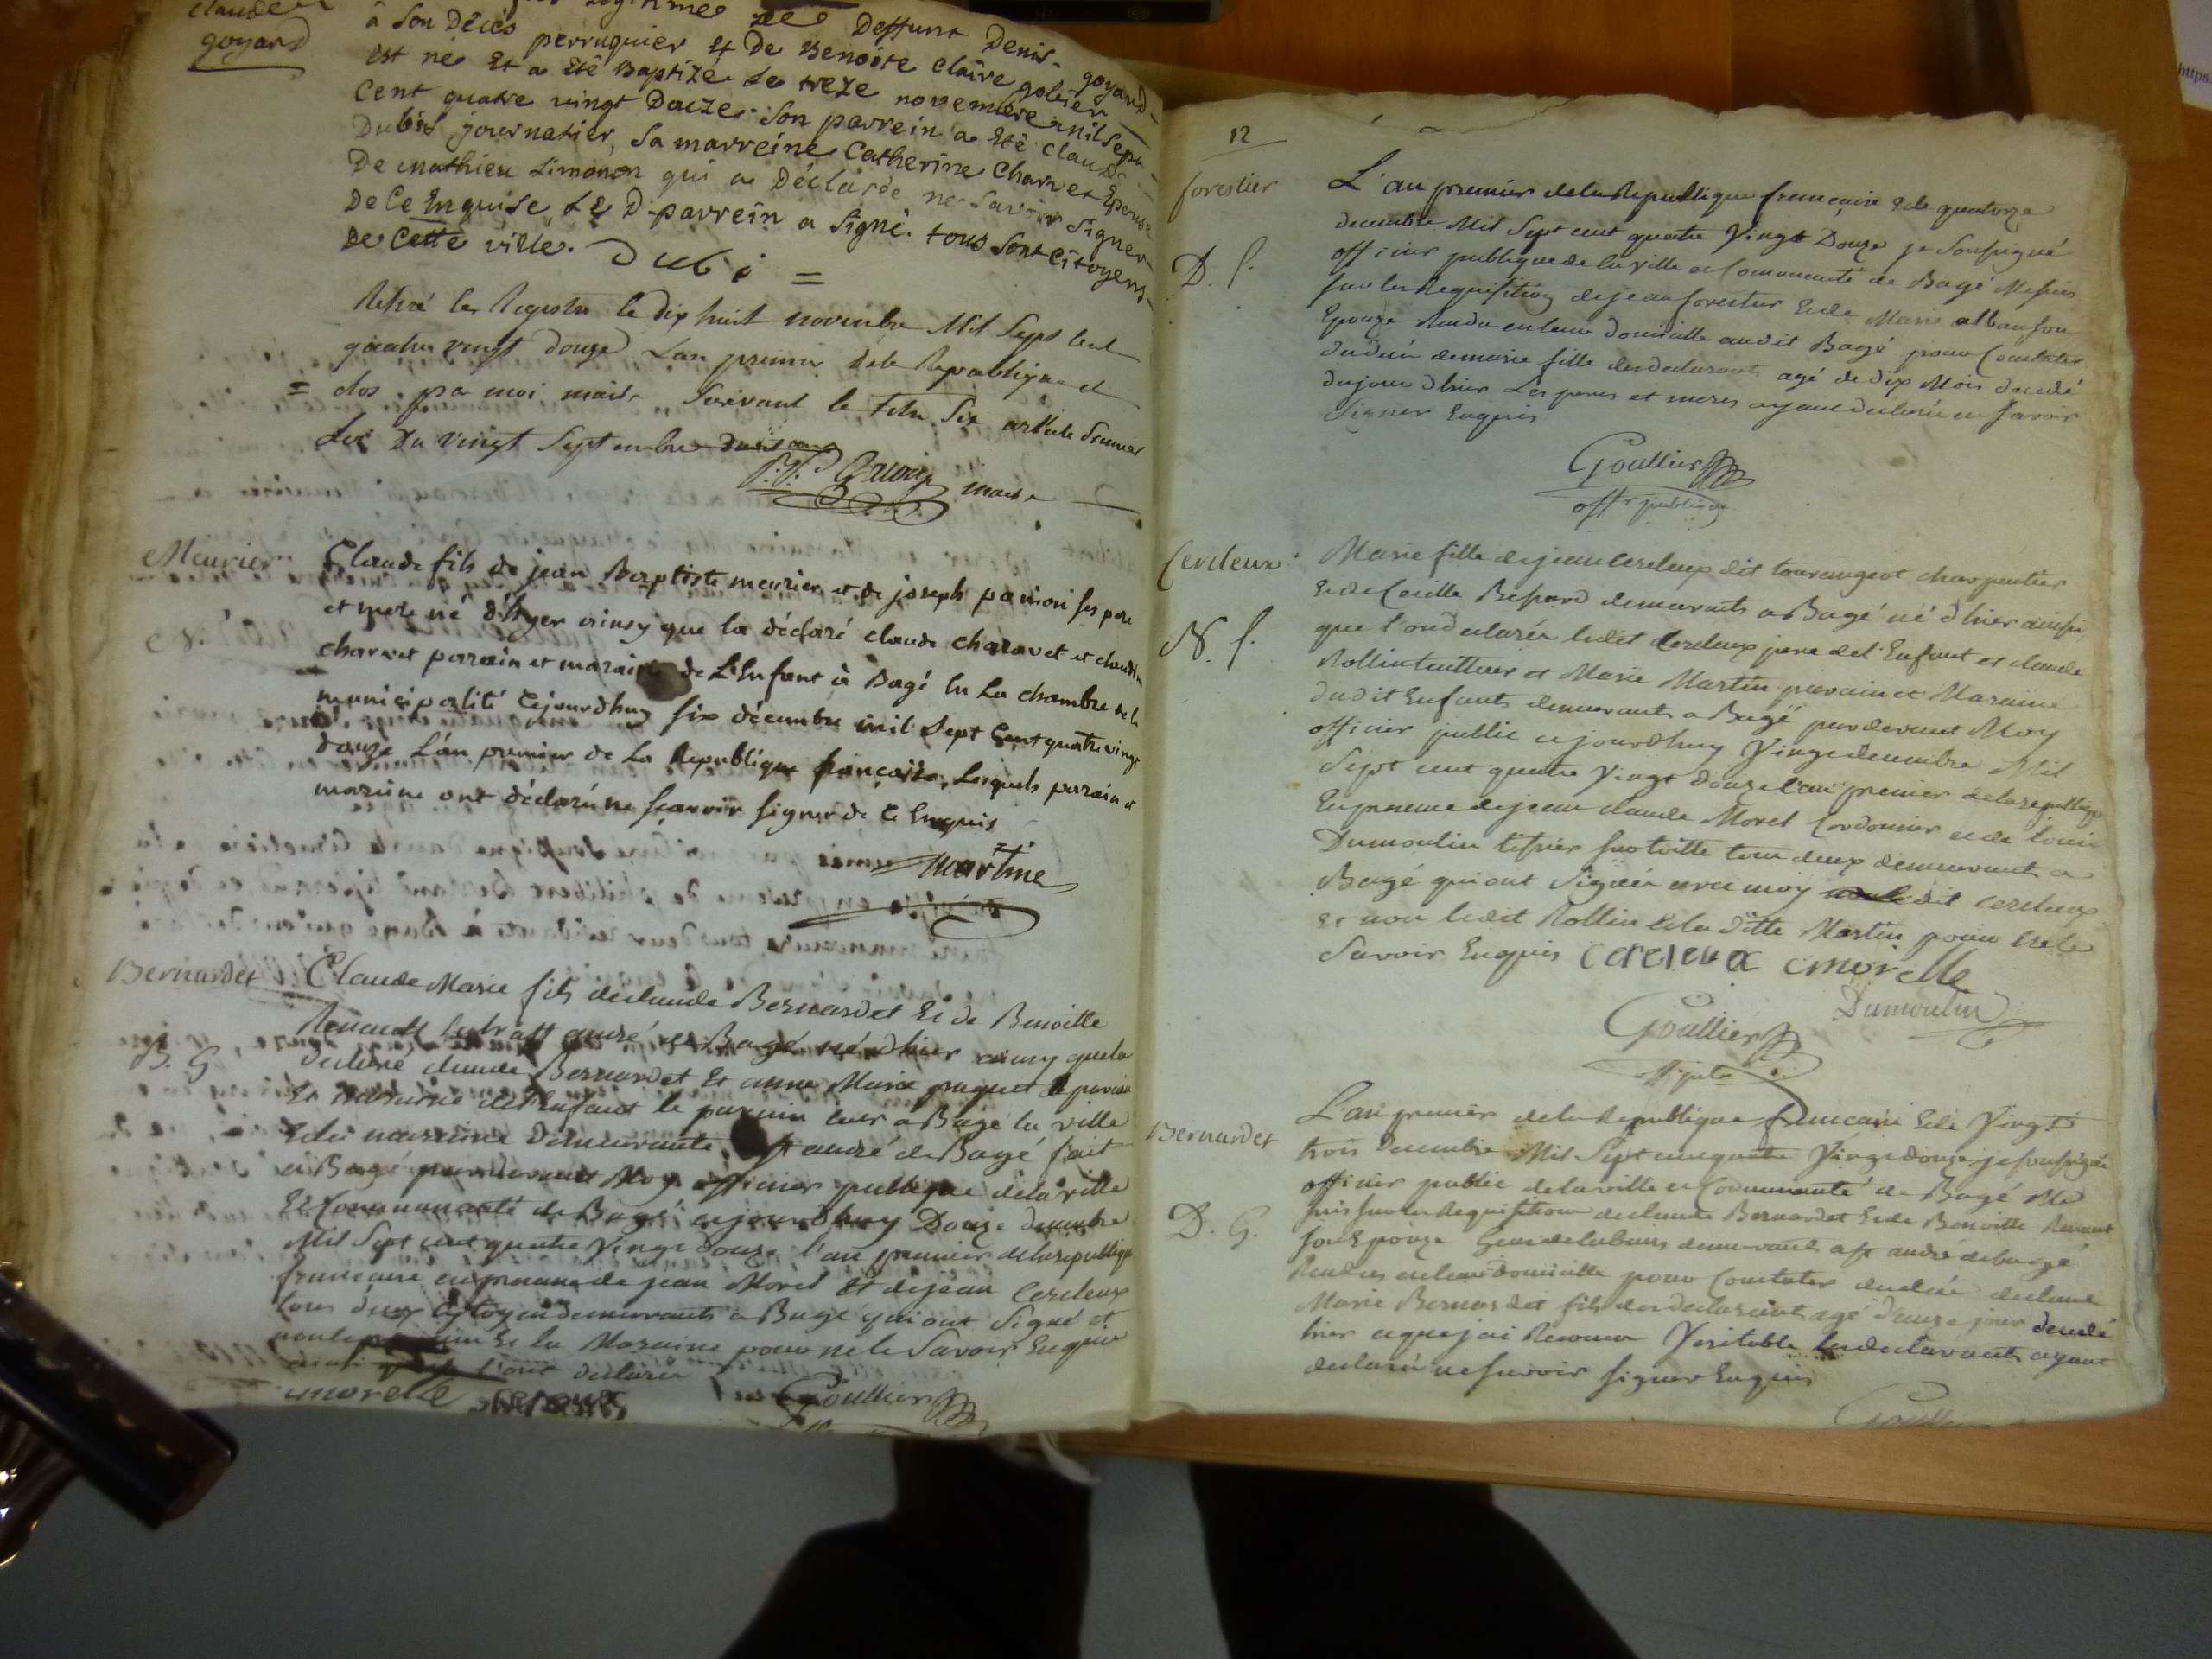 claude
goyard
legitime De Deffunt Denis goyard
à Son Décès perruquier et De Benoite Claire
est né Et a Eté Baptizé Le treze novembre mil Sept
Cent quatre vingt Douze. Son parrein a Eté claude
Dubis journalier, Sa marreine Catherine Charvet Epouse
De mathieu Limonon qui a Déclarée ne Savoir Signer
De Ce Enquise Le D. parrein a Signé. tous Sont Citoyens
De Cette ville. Dubi =
le Registre le dix huit novembre Mil Sept Cent
quatre vingt douze Lan premier dela Republique et
= clos par moi maire Suivant le titre Six article premier
Loi Du vingt Septembre
maire
Meurier
N.
Claude fils de jean Baptiste meurier et de joseph ses pere
et mere né d'hyer ainsy que la déclaré claude charavet et claudine
charvet parain et maraine de L'Enfant à Bagé en La chambre de la
municipalité Cejourdhuy six décembre mil Sept Cent quatre vingt
douze L'an premier de La Republique françaisse, Lesquels parain et
maraine ont déclaré ne sçavoir signer de Ce Enquis
martine
Bernardet
B. G
Claude Marie fils de claude Bernardet Et de Benoitte
Renaud andré de Bagé né d'hier ainsy que la
declaré claude Bernardet Et anne Marie puguet le parain
Et maraine de l'Enfant le parain a Bagé la ville
Et la maraine demeurante a st andré de Bagé fait
a Bagé pardevant Moy officier publique de la ville
Et Communauté de Bagé cejourdhuy Douze decembre
Mil Sept cent quatre Vingt douze l'an premier de la republique
francaise en presence de jean Morel Et de jean Cercleux
tous deux Citoyen demeurants a Bagé qui ont Signé et
non le parain Et la Maraine pour ne le Savoir Enquis
ainsi l'ont declaré
morelle cereleux Goullier
12
forestier
D. f.
L'an premier de la Republique francaise Et le quatorze
decembre Mil Sept cent quatre Vingt Douze je Soussigné
officier publique de la ville et Communauté de Bagé Me suis
sur la Requisition de jean forestier Et de Marie alban son
Epouze Rendu en leur domicille audit Bagé pour Constater
du decés de marie fille des declarants agé de dix Mois decedé
du jour d'hier Les peres et meres ayant declaré ne Savoir
Signer Enquis
Goullier
offr publique
Cercleux
N. f.
Marie fille de jean Cercleux dit tourangeot charpentier
Et de Cecille Bepard demeurants a Bagé né d'hier ainsi
que l'on declarés ledit Cercleux pere de l'Enfant et claude
Rollin tailleur et Marie Martin parain et Maraine
dudit Enfants demeurants a Bagé pardevant Moy
officier public cejourdhuy Vingt decembre Mil
Sept cent quatre Vingt douze l'an premier de la republique
En presence de jean claude Morel Cordonnier et de Louis
Dumoulin tissier sur toille tous deux demeurants a
Bagé qui ont Signés avec moy ledit Cercleux
et non ledit Rollin Et la ditte Martin pour ne le
Savoir Enquis cereleux cmorelle
Dumoulin
Goullier
Bernardet
D. G.
L'an premier de la Republique francaise Et le Vingt
trois Decembre Mil Sept cent quatre Vingt douze je soussigné
officier public de la ville et Communauté de Bagé Me
suis sur la Requisition de claude Bernardet Et de Benoitte Renaud
son Epouze Gens de labeurs demeurant a st andré de bagé
Rendus en leur domicille pour Constater du decés de claude
Marie Bernardet fils des declarant agé d'onze jour decedé
hier ce que j'ai Reconnu Veritable les declarants ayant
declaré ne savoir signer Enquis
Goullier